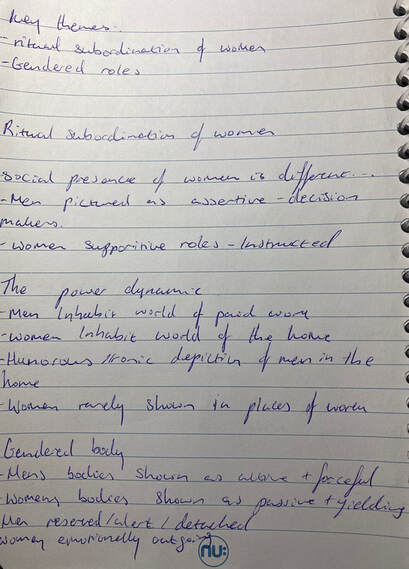 Key themes:
- ritual subordination of women
- Gendered roles
Ritual subordination of women
- Social presence of women is different...
- Men pictured as assertive - decision
makers.
- Women supportive roles - Instructed
The power dynamic
- Men Inhabit world of paid work
- women Inhabit world of the home
- Humorous/Ironic depiction of men in the
home
- Women rarely shown in places of work
Gendered body
- Mens bodies shown as active + forceful
- Womens bodies shown as passive + yielding
Men reserved/alert/detached
women emotionally outgoing
nu: